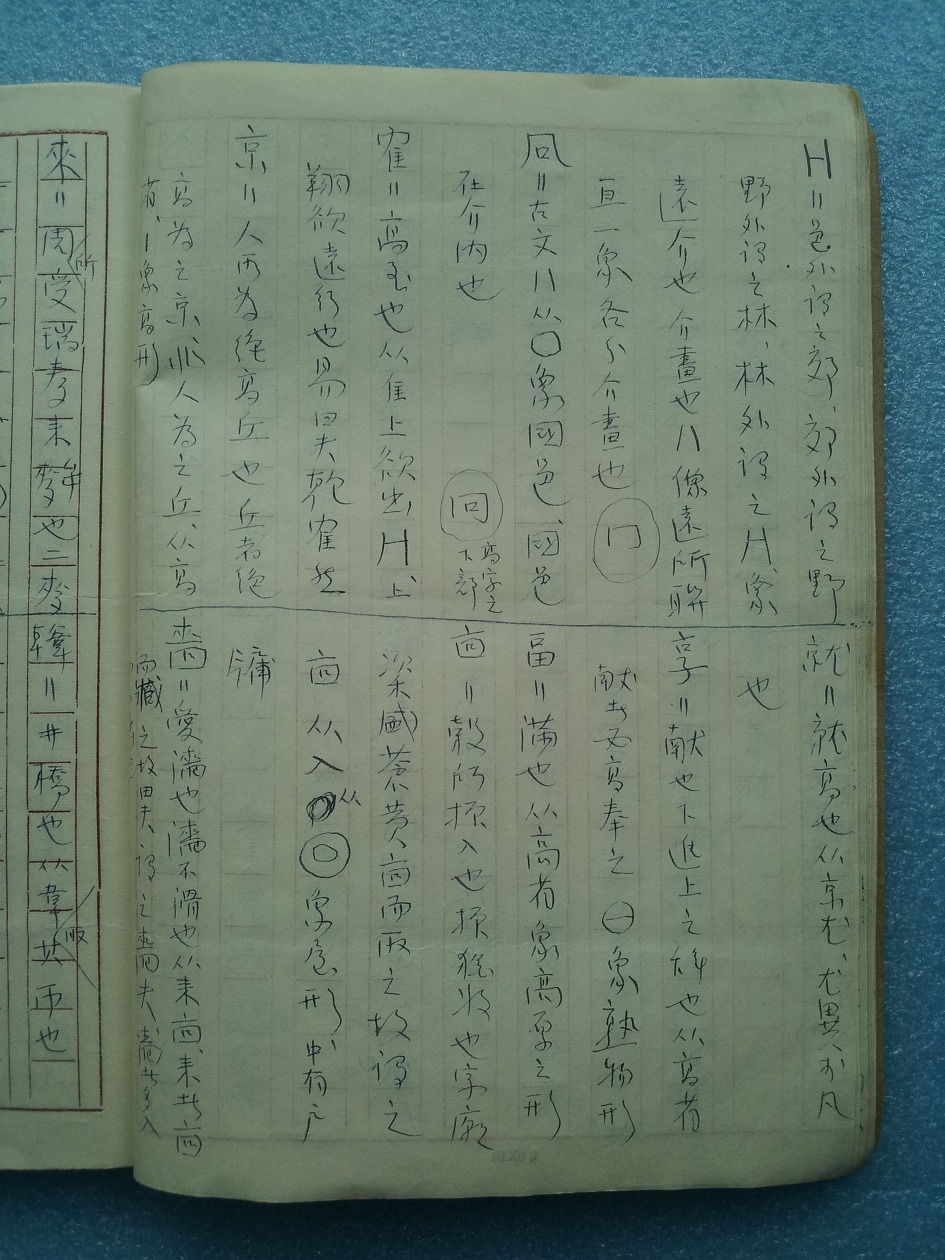 H=邑外謂之郊、郊外謂之野
野外謂之林、林外謂之H、象
遠介也 介畫也八像遠所聯
亘一象各分介畫也 冂
冋=古文八从〇象國邑、國邑
在介内也 冋 高字之下部
隺=高至也从隹上欲出H、上
翔欲遠行也易曰夫乾隺然
京=人所为絕高丘也丘者絕
高为之京、非人为之丘、从高
省、丨象高形
就=就高也从京尤、尤異於凡
也
享=献也下進上之辞也从高省
献者必高奉之 ㊀象熟物形
畐=滿也从高省象高厚之形
㐭=榖所振入也振猶收也字廩
粢盛蒼黄㐭而取之故謂之
㐭 从入从◎象屋形、中有户
牖
嗇=愛濇也濇不滑也从来㐭、来者㐭
而藏之故田夫謂之嗇夫 嗇者多入
來=周所受瑞麥来麰也二麥 韓=井橋也从韋取其帀也